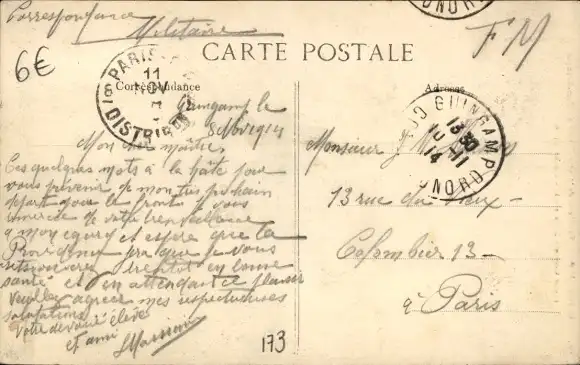 Correspondance
Militaire
FM
6€
CARTE POSTALE
Correspondance
Adresse
PARIS
11
NOV
DISTRIB
GUINGAMP
13 30
10 -11
14
NORD
NORD
Guingamp le
8 Nov 1914
Mon cher maître,
Ces quelques mots à la hâte pour
vous prévenir de mon très prochain
départ pour le front. Je vous
remercie de votre bienveillance
à mon égard et espère que la
Providence fera que je vous
retrouverai bientôt en bonne
santé et en attendant ce plaisir
veuillez agréer mes respectueuses
salutations
Votre dévoué élève
et ami
Monsieur
13 rue du Vieux-
Colombier 13-
à Paris
173